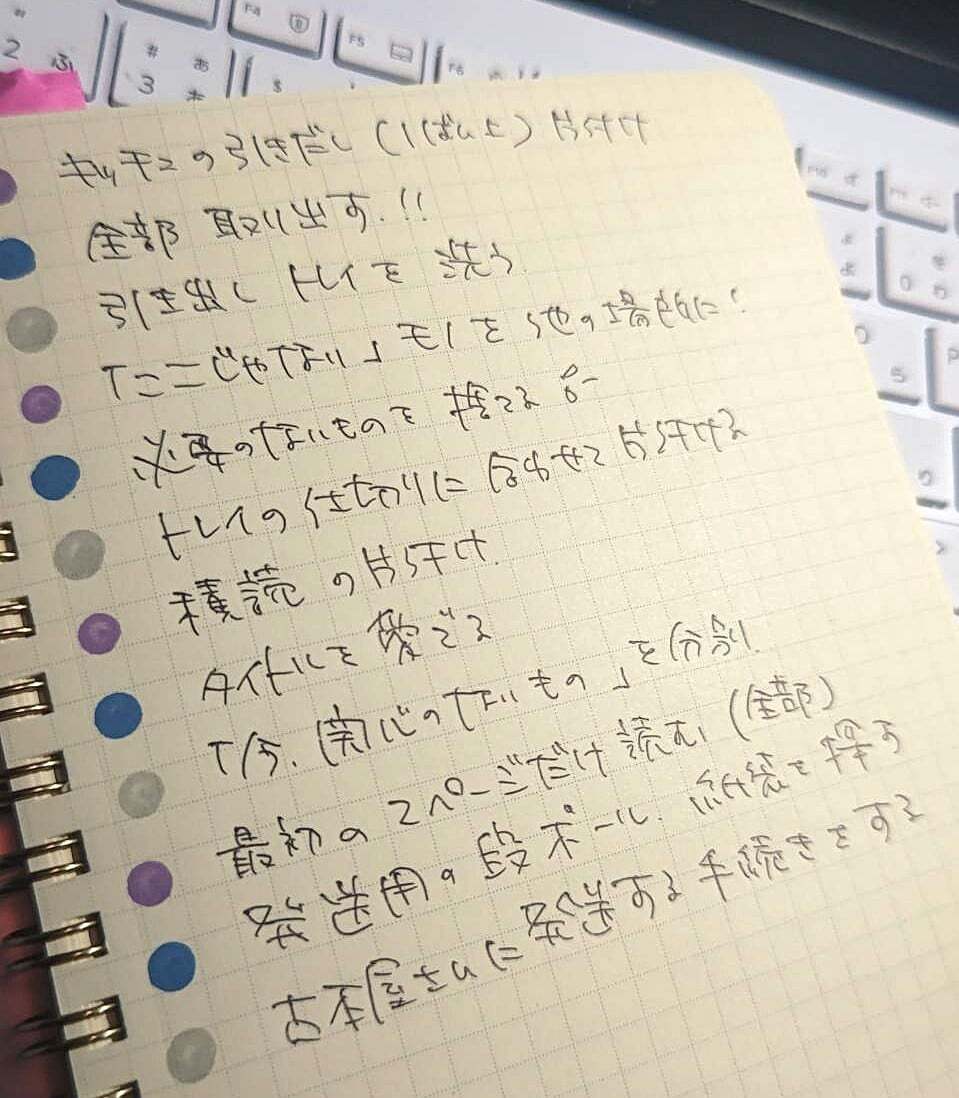 2 ふ
# あ
3
F4
F5
F6
キッチンの引きだし (1ばん上) 片付け
全部 取り出す.!!
引き出し トレイを 洗う
「ここじゃない」モノを 他の場所に!
必要のないものを 捨てる
トレイの仕切りに 合わせて 片付ける
積読 の片付け.
タイトルを 愛でる
「今、関心のないもの」を分別.
最初の 2ページだけ 読む (全部)
発送用の段ボール. を 探す
古本屋さんに 発送する 手続きをする